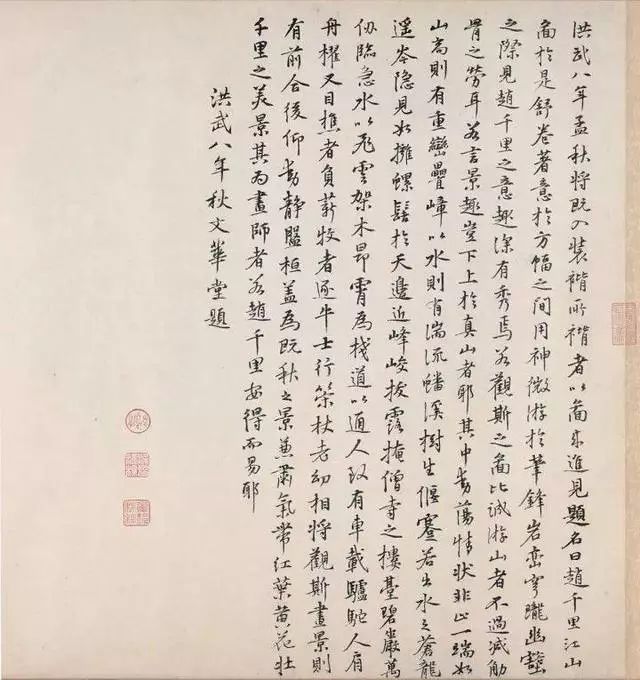 洪武八年孟秋将既入裝褙所褙者以啚來進見題名曰趙千里江山
啚於是舒卷著意於方幅之間用神微游於筆鋒岩巒穹窿幽壑
之際見趙千里之意趣深有秀焉若觀斯之啚比誠游山者不過减觔
骨之勞耳若言景趣豈下上於真山者耶其中動蕩情狀非止一端如
山高則有重巒疊嶂以水則有湍流蟠溪樹生偃蹇若出水之蒼龍
遥岑隐見如擁螺髻於天邊近峰峻拔露掩僧寺之樓臺碧巖萬
仭臨急水以飛雲架木昂霄為棧道以通人致有車載驢駝人肩
舟櫂又目樵者負薪牧者逐牛士行策杖老幼相將觀斯畫景則
有前合後仰動静盤桓盖為既秋之景兼肅氣帶紅葉黄花壯
千里之美景其為畫師者若趙千里安得而易耶
洪武八年秋文華堂題